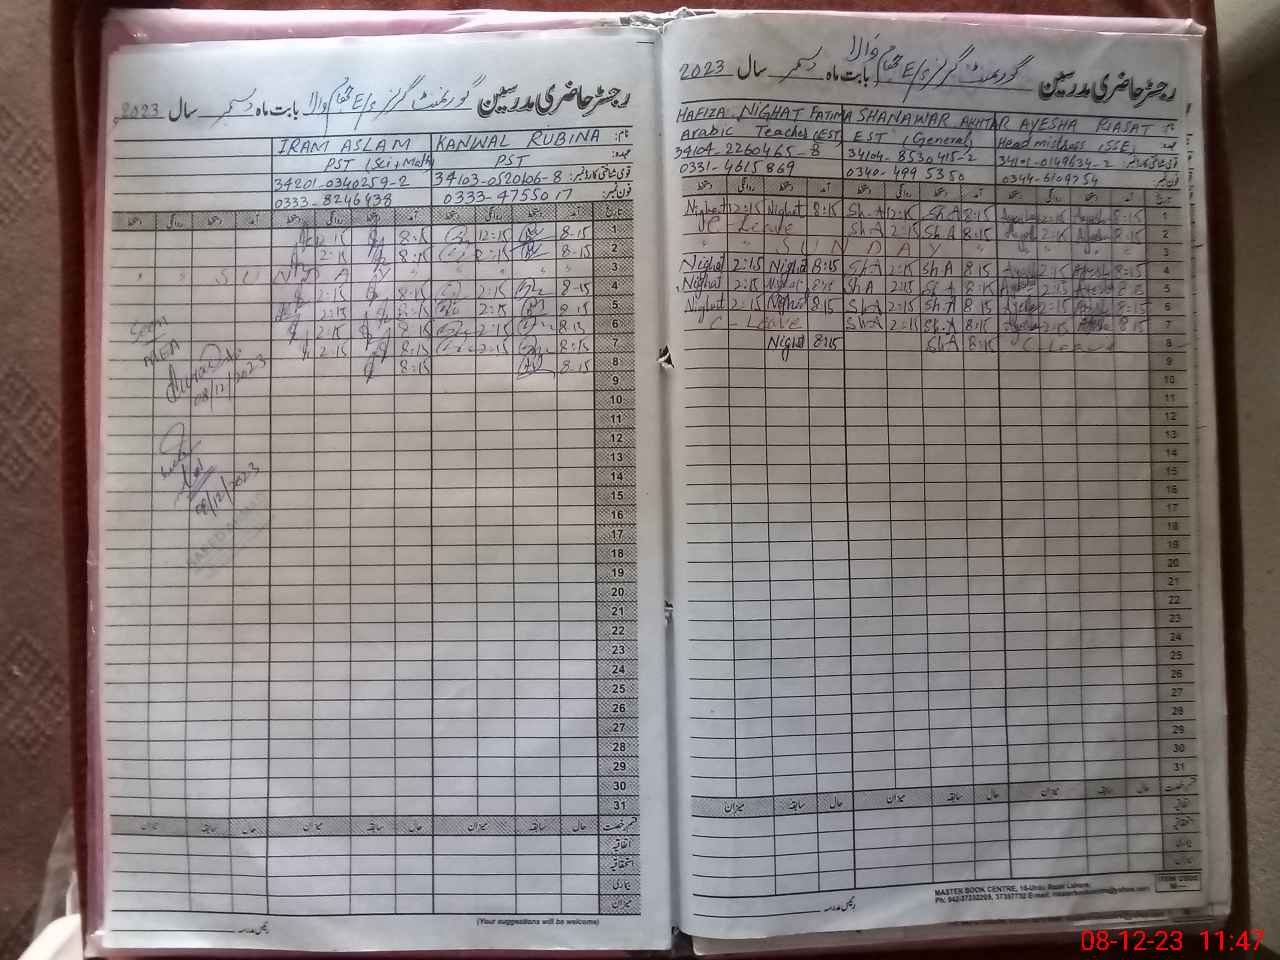 رجسٹر حاضری مدرسین گورنمنٹ گرلز E/S والا بابت ماہ دسمبر سال 2023
نام: KANWAL RUBINA IRAM ASLAM
عہدہ: PST PST (Sci, Math)
قومی شناختی کارڈ نمبر: 34103-0520606-8 34201-0340259-2
فون نمبر: 0333-4755017 0333-8246438
تاریخ آمد دستخط روانگی دستخط آمد دستخط روانگی دستخط آمد دستخط روانگی دستخط
1 8:15 12:15 8:15 12:15
2 8:15 2:15 8:15 2:15
3 " " SUNDAY " " "
4 8:15 2:15 8:15 2:15
5 8:15 2:15 8:15 2:15
6 8:15 2:15 8:15 2:15
7 8:15 2:15 8:15 2:15
8 8:15 8:15
Seen
MEA
08/12/2023
08/12/2023
9
10
11
12
13
14
15
16
17
18
19
20
21
22
23
24
25
26
27
28
29
30
31
قسم رخصت حال سابقہ میزان حال سابقہ میزان حال سابقہ میزان
اتفاقیہ
استحقاقیہ
بیماری
میزان
(Your suggestions will be welcome)
رئیس مدرسہ
رجسٹر حاضری مدرسین گورنمنٹ گرلز E/S والا بابت ماہ دسمبر سال 2023
نام: HAFIZA NIGHAT FATIMA SHANAWAR AKHTAR AYESHA RIASAT
عہدہ: Arabic Teacher (EST) EST (General) Headmistress (SSE)
قومی شناختی کارڈ نمبر: 34104-2260465-8 34104-8530415-2 34101-0149634-2
فون نمبر: 0331-4615869 0340-4995350 0344-6109754
تاریخ آمد دستخط روانگی دستخط آمد دستخط روانگی دستخط آمد دستخط روانگی دستخط
1 Nighat 12:15 Nighat 8:15 Sh.A 12:15 Sh.A 8:15 Ayesha 12:15 Ayesha 8:15
2 C-Leave Sh.A 2:15 Sh.A 8:15 Ayesha 2:15 Ayesha 8:15
3 " " SUNDAY " " " "
4 Nighat 2:15 Nighat 8:15 Sh.A 2:15 Sh.A 8:15 Ayesha 2:15 Ayesha 8:15
5 Nighat 2:15 Nighat 8:15 Sh.A 2:15 Sh.A 8:15 Ayesha 2:15 Ayesha
6 Nighat 2:15 Nighat 8:15 Sh.A 2:15 Sh.A 8:15 Ayesha 2:15 Ayesha 8:15
7 C-Leave Sh.A 2:15 Sh.A 8:15 Ayesha 2:15 Ayesha 8:15
8 Nighat 8:15 Sh.A 8:15 C Leave
9
10
11
12
13
14
15
16
17
18
19
20
21
22
23
24
25
26
27
28
29
30
31
قسم رخصت حال سابقہ میزان حال سابقہ میزان حال سابقہ میزان
اتفاقیہ
استحقاقیہ
بیماری
میزان
MASTER BOOK CENTRE, 16-Urdu Bazar Lahore.
رئیس مدرسہ
ITEM CODE
08-12-23 11:47